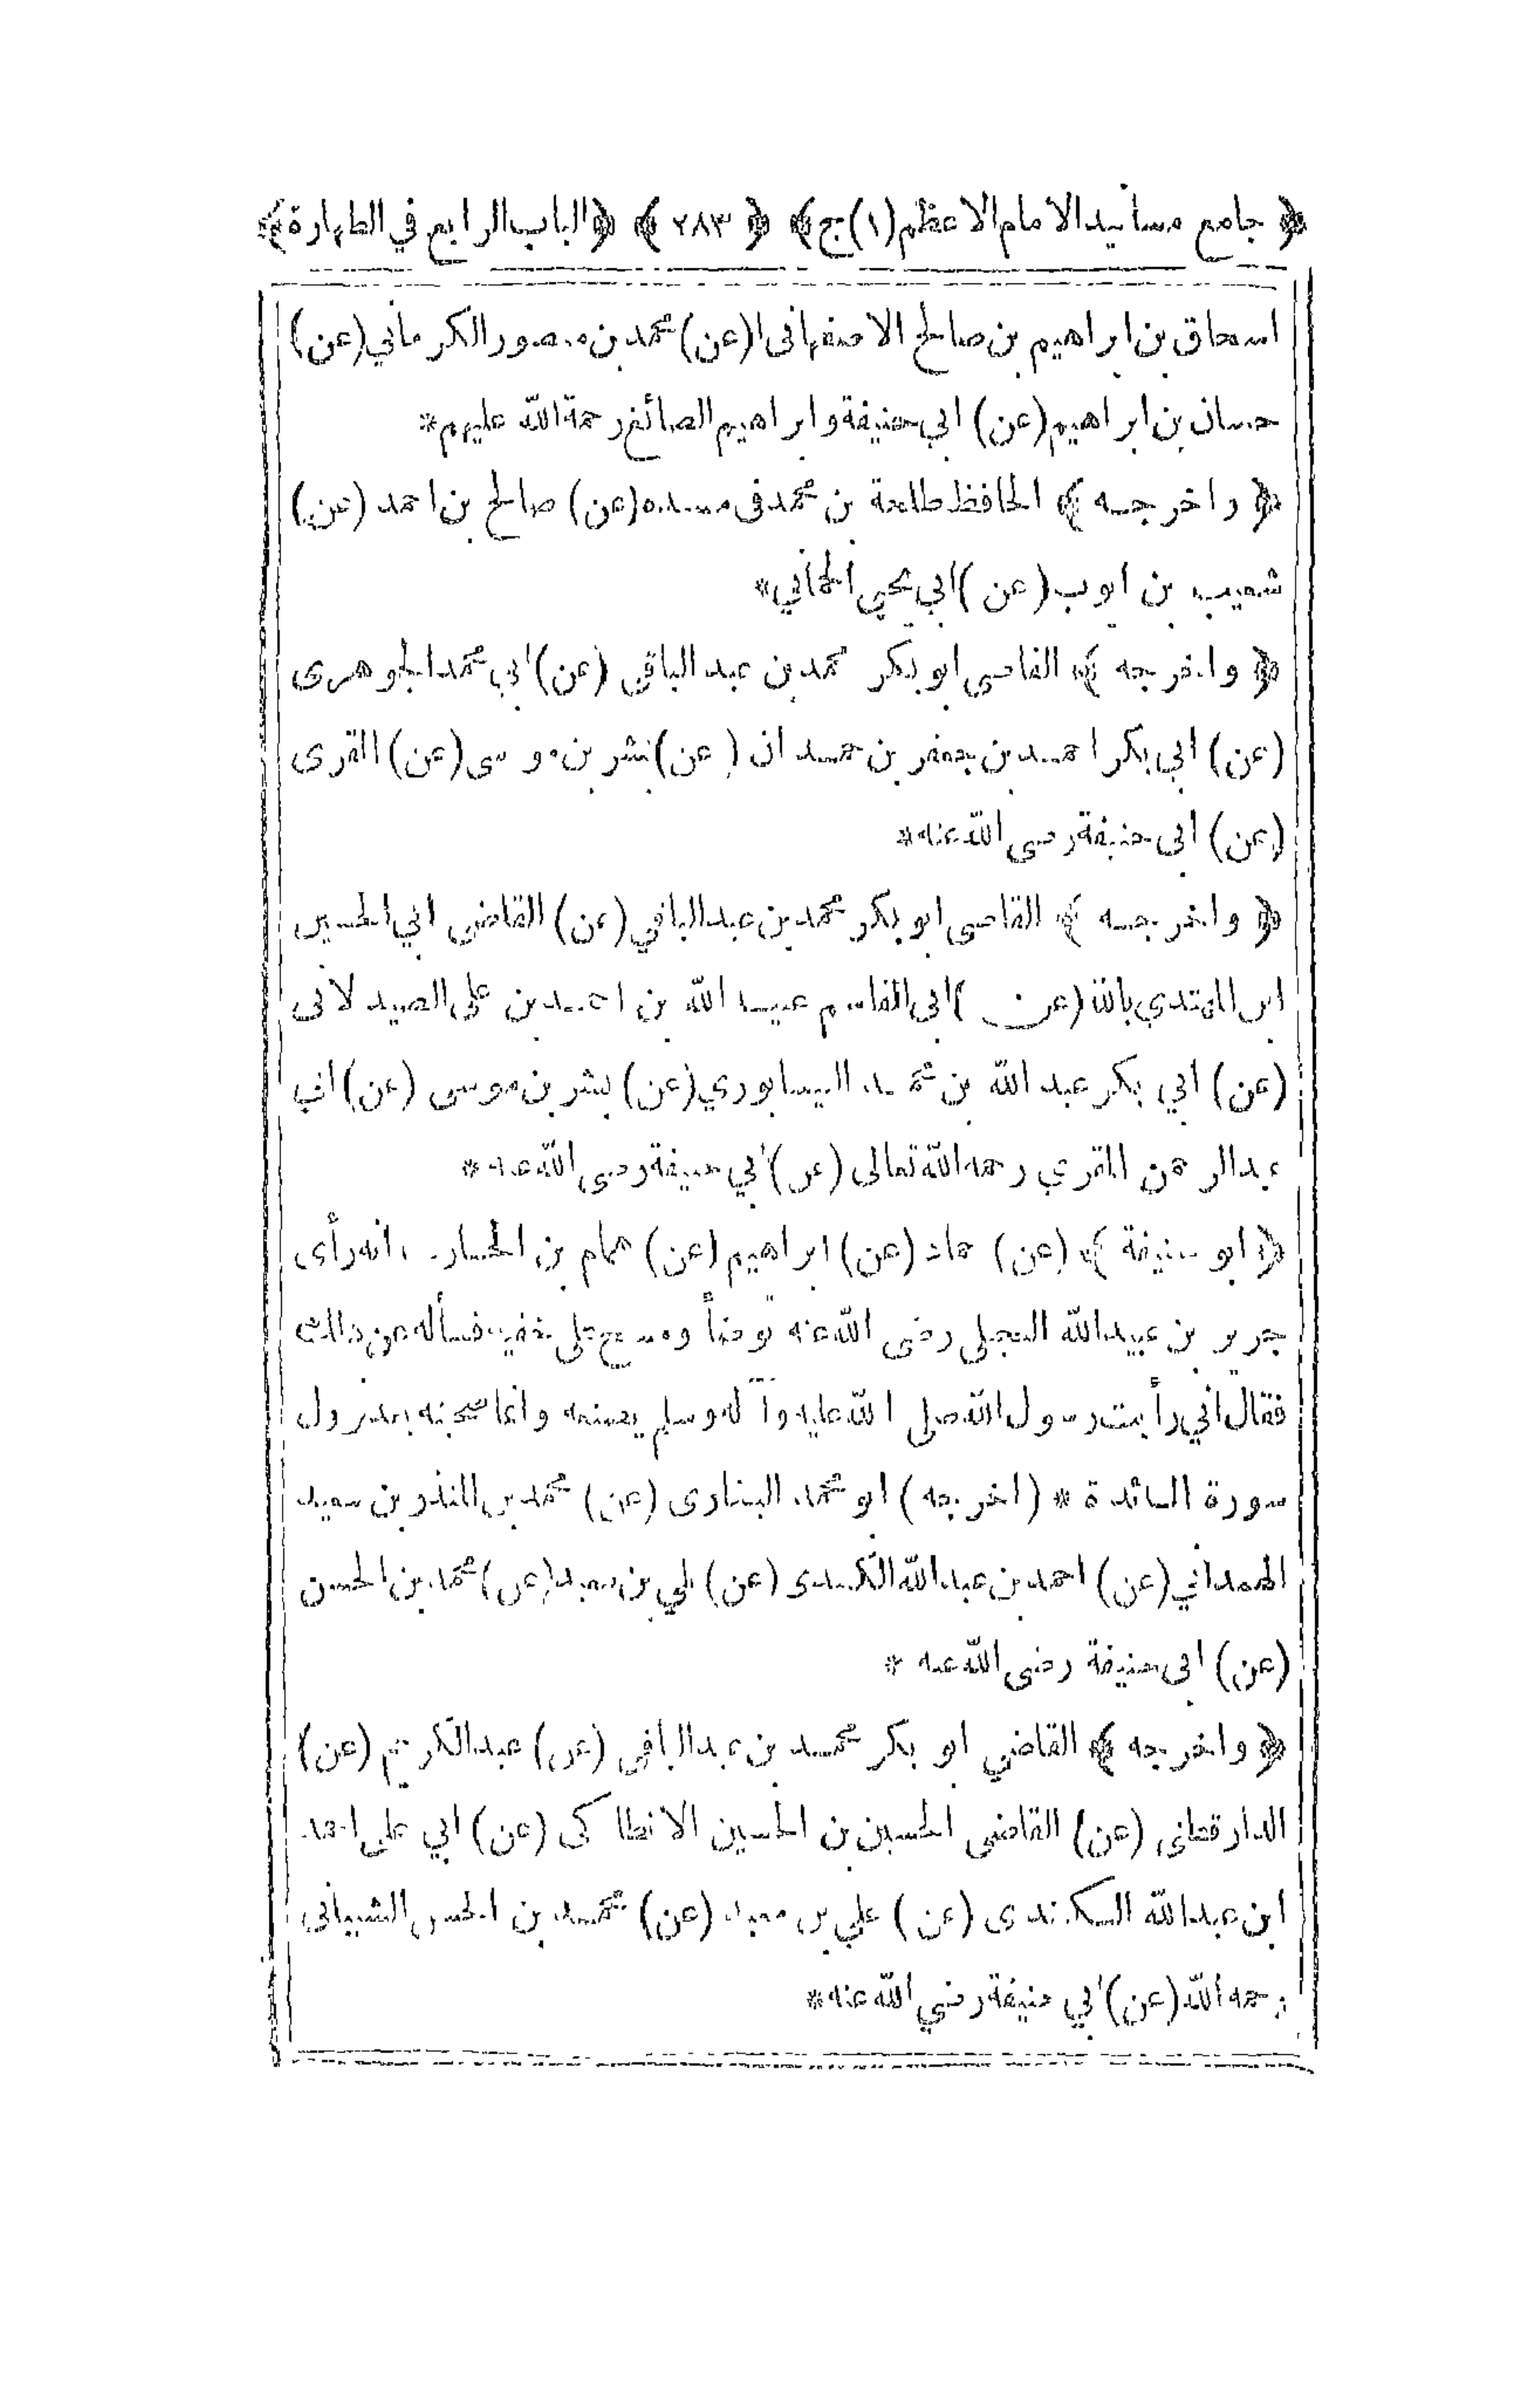 ﴿ جامع مسانيد الامام الاعظم (١) ج ﴾ ﴿ ٢٨٣ ﴾ ﴿ الباب الرابع في الطهارة ﴾
اسحاق بن ابراهيم بن صالح الاصفهانى (عن) محمد بن منصور الكرماني (عن)
حسان بن ابراهيم (عن) ابي حنيفة وابراهيم الصائغ رحمة الله عليهم *
﴿ واخرجه ﴾ الحافظ طلحة بن محمد فى مسنده (عن) صالح بن احمد (عن)
شعيب بن ايوب (عن) ابي يحيى الحماني *
﴿ واخرجه ﴾ القاضى ابو بكر محمد بن عبد الباقي (عن) ابي محمد الجوهرى
(عن) ابي بكر احمد بن جعفر بن حمدان (عن) بشر بن موسى (عن) المقرى
(عن) ابى حنيفة رضى الله عنه *
﴿ واخرجه ﴾ القاضى ابو بكر محمد بن عبد الباقي (عن) القاضى ابي الحسين
ابن المهتدي بالله (عن) ابى القاسم عبيد الله بن احمد بن على الصيدلانى
(عن) ابي بكر عبد الله بن محمد النيسابوري (عن) بشر بن موسى (عن) ابي
عبد الرحمن المقري رحمه الله تعالى (عن) ابي حنيفة رضى الله عنه *
﴿ ابو حنيفة ﴾ (عن) حماد (عن) ابراهيم (عن) همام بن الحارث انه رأى
جرير بن عبد الله البجلى رضى الله عنه توضأ ومسح على خفيه فسأله عن ذلك
فقال اني رأيت رسول الله صلى الله عليه وآله وسلم يصنعه وانما صحبته بعد نزول
سورة المائدة * (اخرجه) ابو محمد البخارى (عن) محمد بن المنذر بن سعيد
الهمداني (عن) احمد بن عبد الله الكندى (عن) علي بن معبد (عن) محمد بن الحسن
(عن) ابى حنيفة رضى الله عنه *
﴿ واخرجه ﴾ القاضي ابو بكر محمد بن عبد الباقى (عن) عبد الكريم (عن)
الدارقطنى (عن) القاضى الحسين بن الحسين الانطاكى (عن) ابي على احمد
ابن عبد الله الكندى (عن) علي بن معبد (عن) محمد بن الحسن الشيبانى
رحمه الله (عن) ابي حنيفة رضي الله عنه *